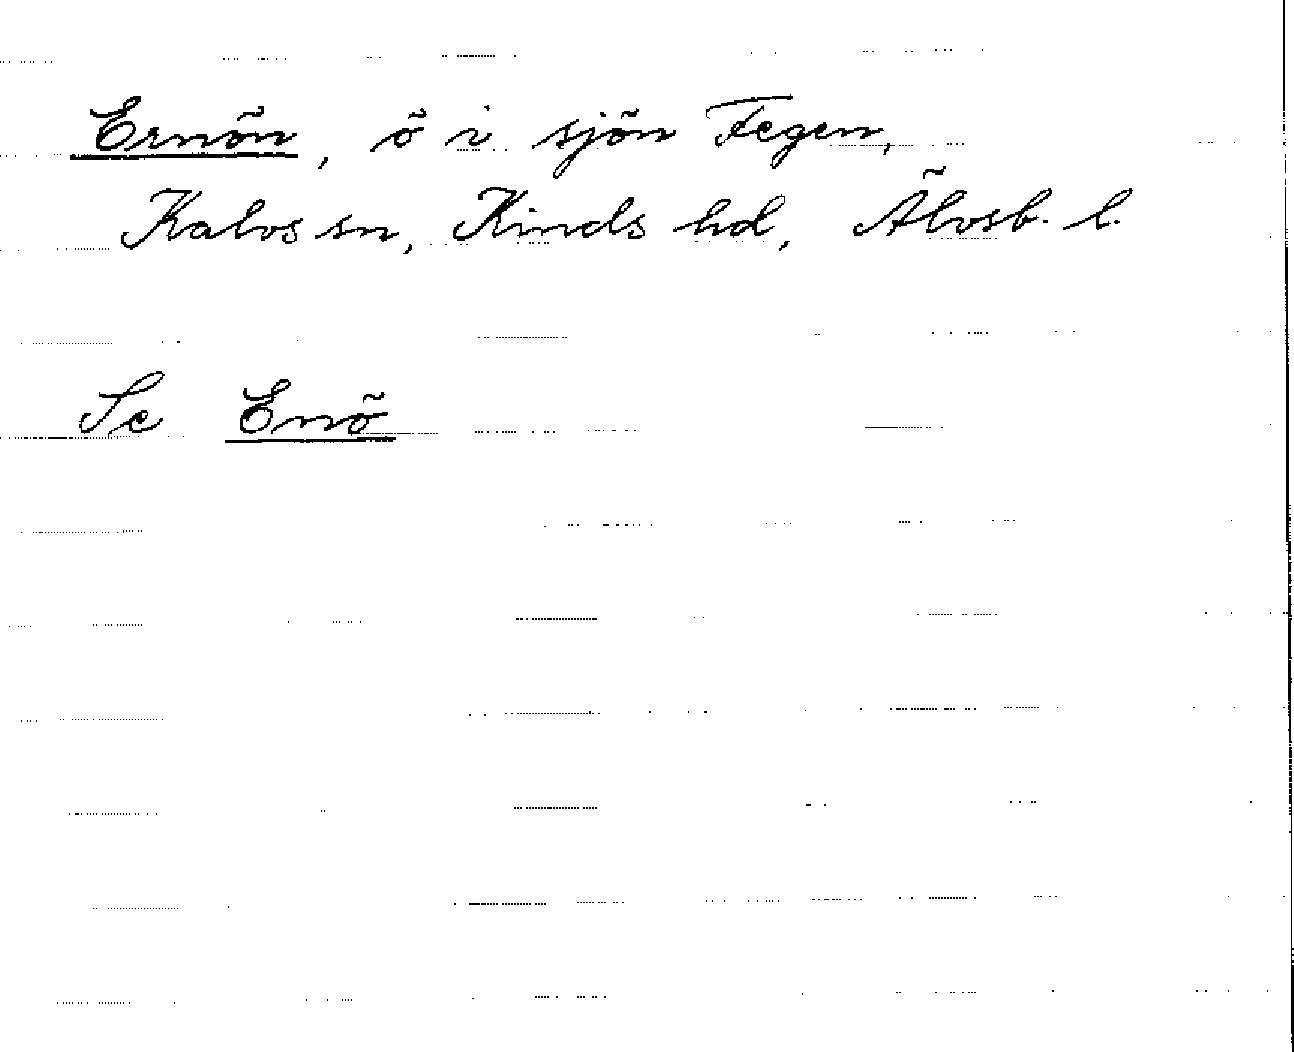 Ernön, ö i sjön Fegen,
Kalvs sn, Kinds hd, Älvsb. l.
Se Enö